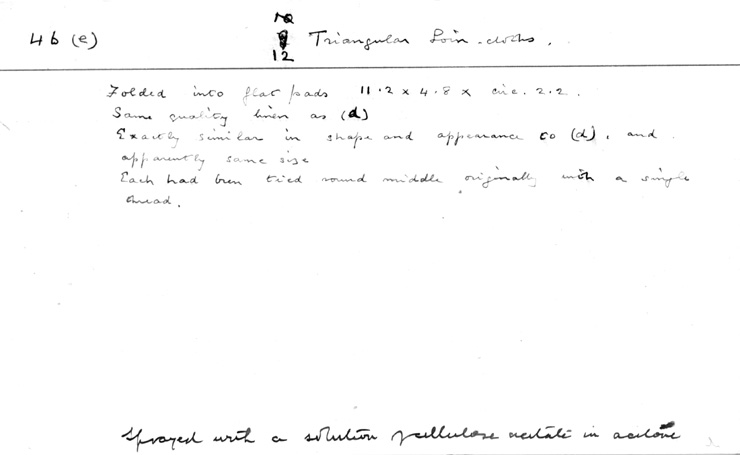 46 (e)
10
9
12 Triangular Loin-cloths.
Folded into flat pads 11.2 x 4.8 x circ. 2.2.
Same quality linen as (d)
Exactly similar in shape and appearance to (d), and
apparently same size
Each had been tied round middle originally with a single
thread.
Sprayed with a solution of cellulose acetate in acetone